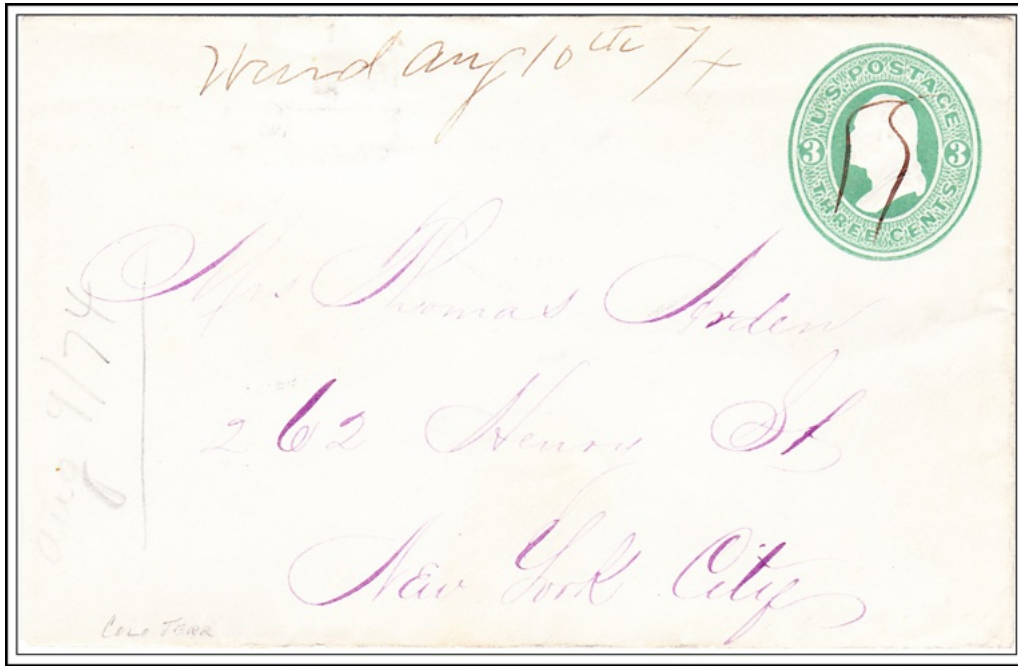 Aug 10th 74
U.S. POSTAGE
3 3
THREE CENTS
Mrs Thomas Arden
262 Henry St
New York City
Aug 9/74
COLO TERR